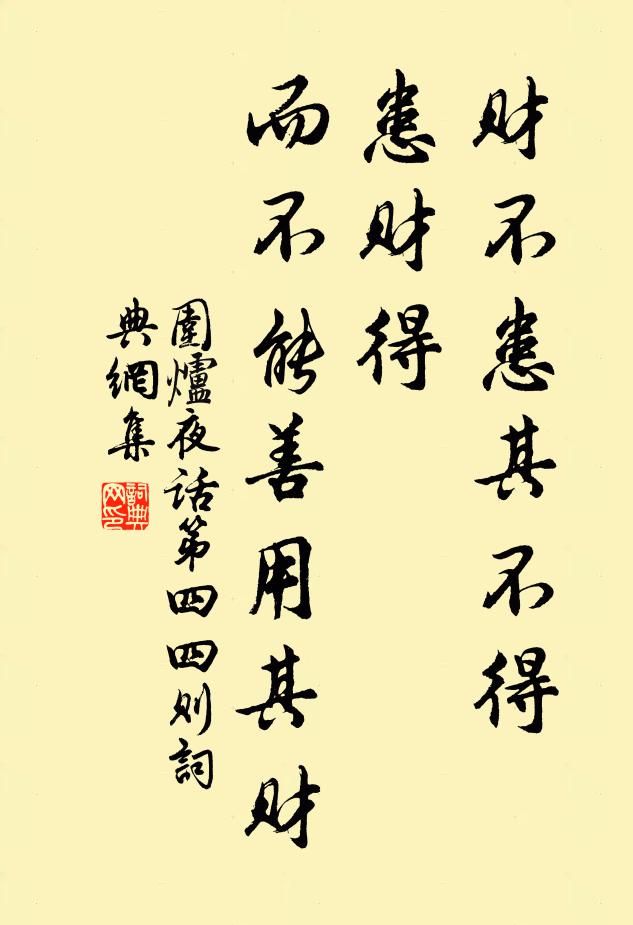 財不患其不得
患財得
而不能善用其財
圍爐夜話第四四則詞
典網集
詞典
网印